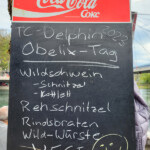 Coca-Cola
Coke
TC-Delphin
Obelix-Tag
Wildschwein
- Schnitzel
- Kotlett
Rehschnitzel
Rindsbraten
Wild-Würste